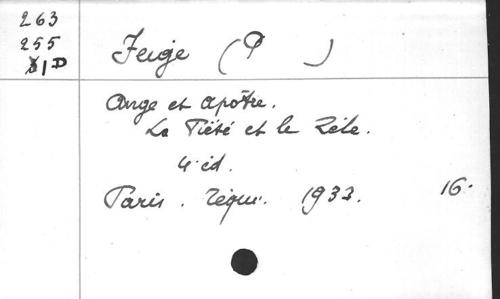 263
255
1D
Feige (P )
Ange et Apôtre.
La Piété et le Zèle.
4 éd.
Paris. Téqui. 1933. 16.